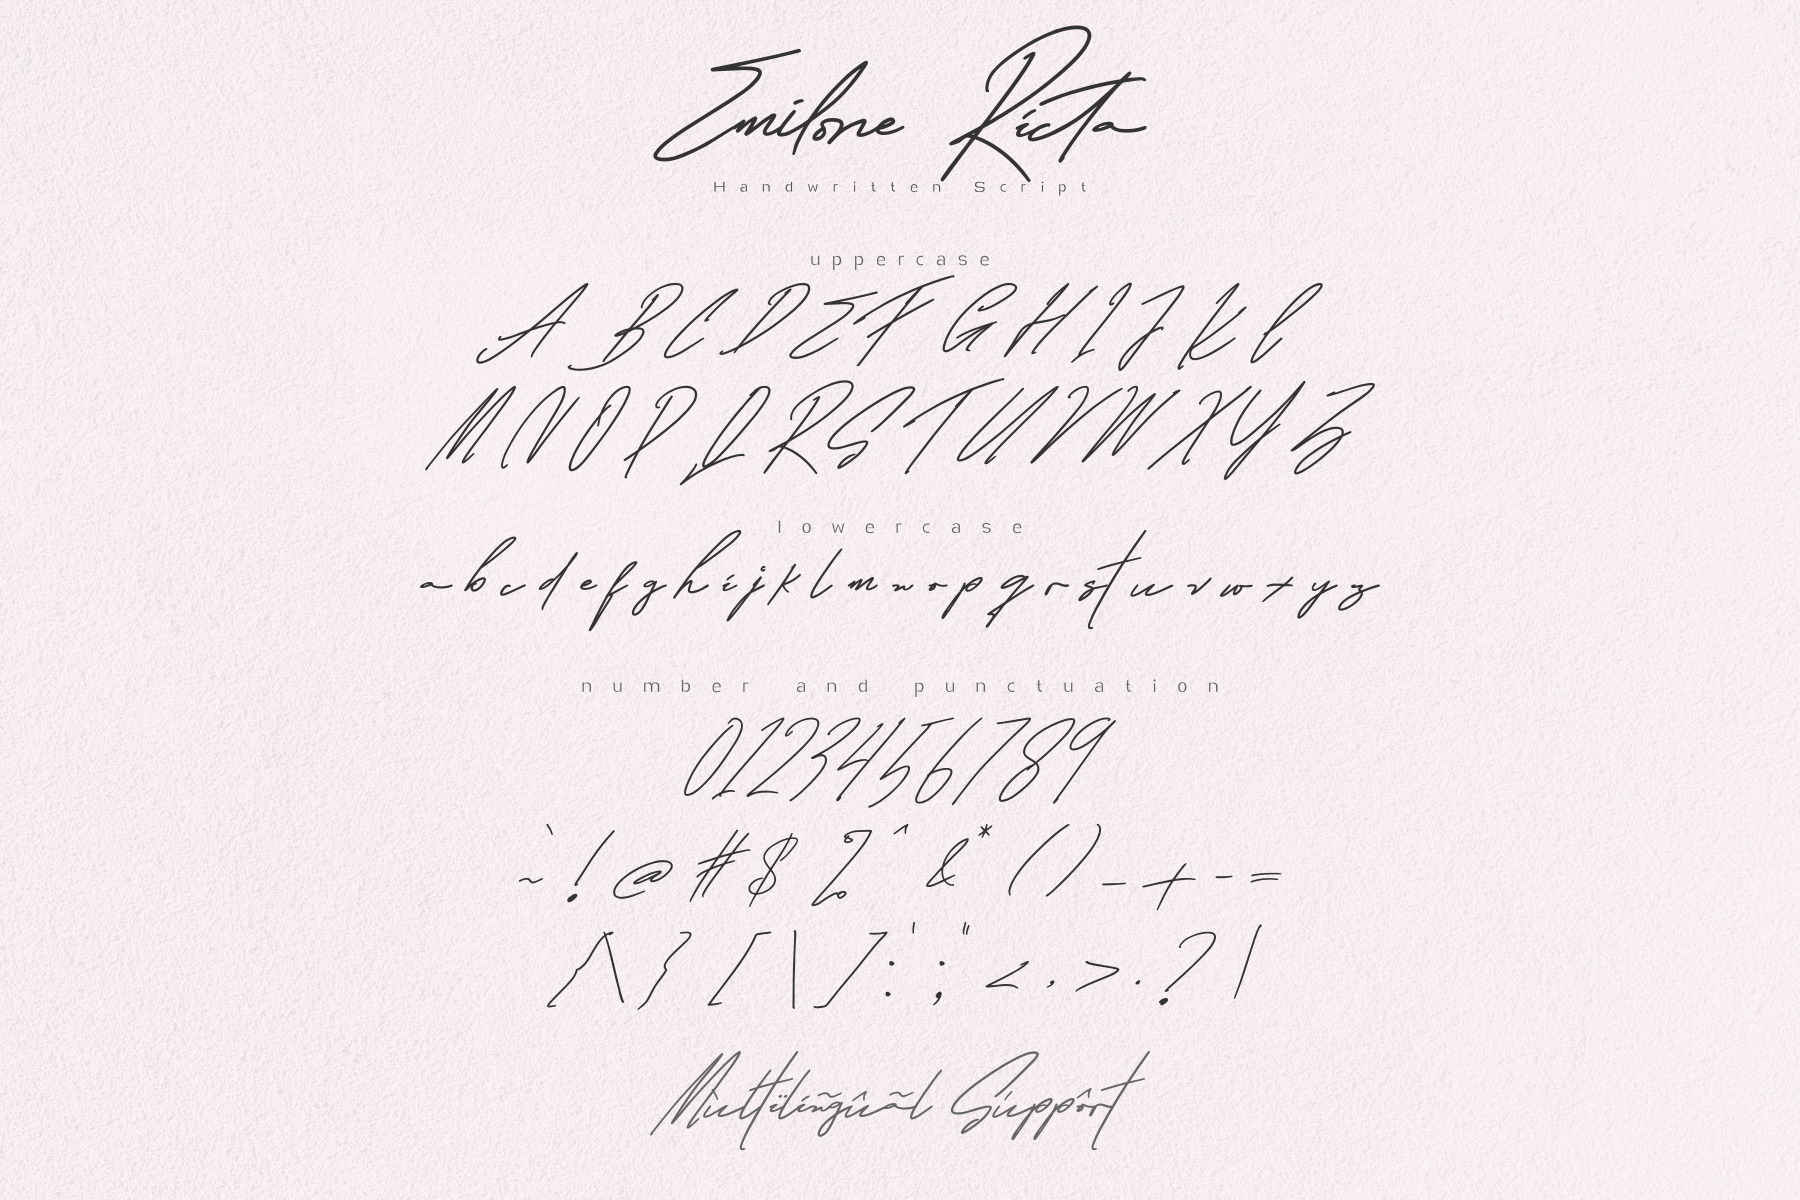 Emilone Ricta
Handwritten Script
uppercase
A B C D E F G H I J K L
M N O P Q R S T U V W X Y Z
lowercase
a b c d e f g h i j k l m n o p q r s t u v w x y z
number and punctuation
0123456789
` ~ ! @ # $ % ^ & * ( ) _ + - =
{ \ } [ | ] : ' ; " < , > . ? /
Mùltïlíñgûãl Súppôrt